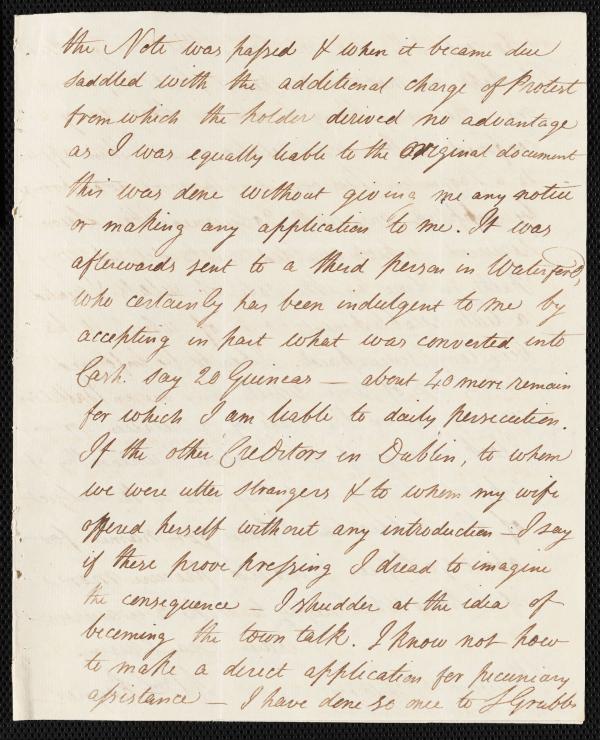 the Note was passed & when it became due
saddled with the additional charge of Protest
from which the holder derived no advantage
as I was equally liable to the original document
this was done without giving me any notice
or making any application to me. It was
afterwards sent to a third person in Waterford,
who certainly has been indulgent to me by
accepting in part what was converted into
Cash. say 20 Guineas — about 40 more remain
for which I am liable to daily persecution.
If the other Creditors in Dublin, to whom
we were utter strangers & to whom my wife
offered herself without any introduction — I say
if these prove pressing I dread to imagine
the consequence — I shudder at the idea of
becoming the town talk. I know not how
to make a direct application for pecuniary
assistance — I have done so once to S Grubb